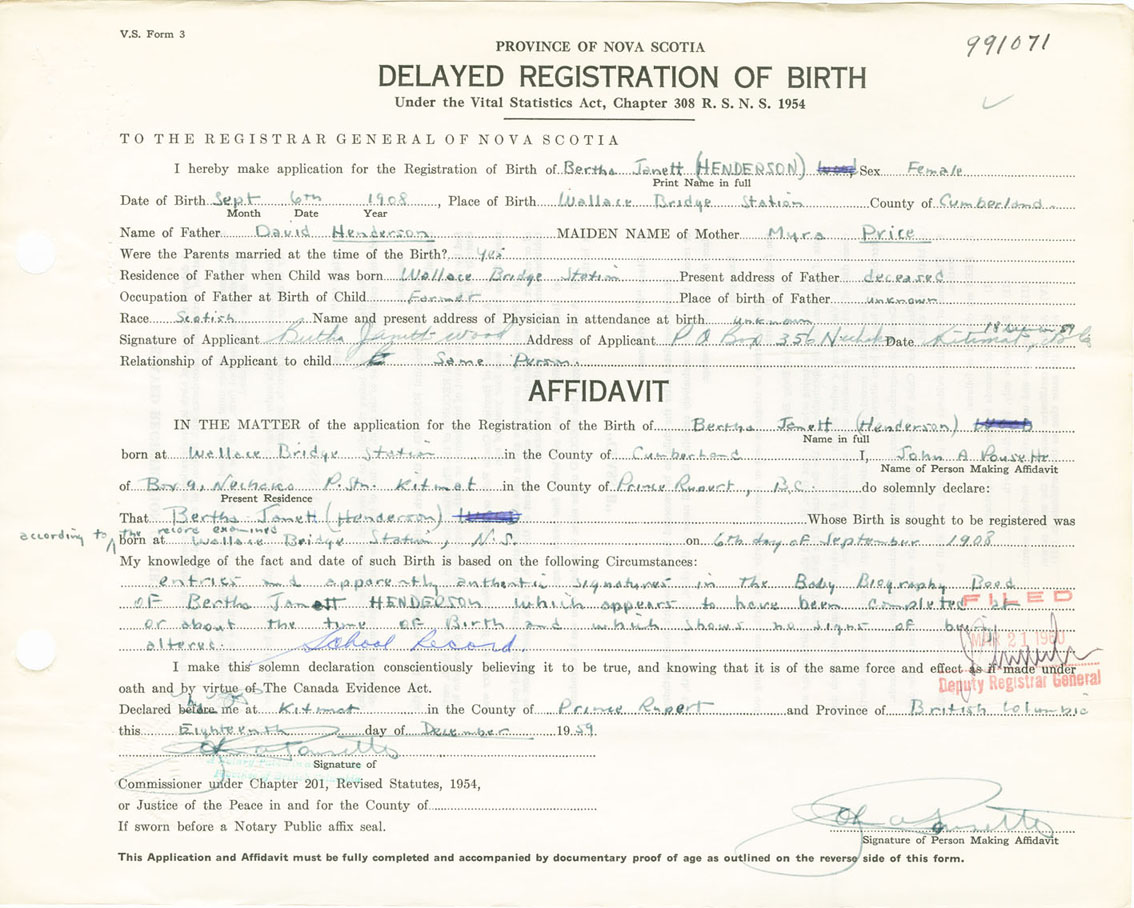 V.S. Form 3
991071
PROVINCE OF NOVA SCOTIA
DELAYED REGISTRATION OF BIRTH
Under the Vital Statistics Act, Chapter 308 R. S. N. S. 1954
TO THE REGISTRAR GENERAL OF NOVA SCOTIA
I hereby make application for the Registration of Birth of Bertha Janett (HENDERSON) Sex Female
Print Name in full
Date of Birth Sept 6th 1908, Place of Birth Wallace Bridge Station County of Cumberland.
Month Date Year
Name of Father David Henderson MAIDEN NAME of Mother Myra Price
Were the Parents married at the time of the Birth? yes
Residence of Father when Child was born Wallace Bridge Station Present address of Father deceased
Occupation of Father at Birth of Child Farmer Place of birth of Father unknown
Race Scotish Name and present address of Physician in attendance at birth unknown
Signature of Applicant Bertha Janett Wood Address of Applicant P O Box 356 Nechako Date Kitimat, B.C.
Relationship of Applicant to child Same Person.
AFFIDAVIT
IN THE MATTER of the application for the Registration of the Birth of Bertha Janett (Henderson)
Name in full
born at Wallace Bridge Station in the County of Cumberland I, John A Pousette
Name of Person Making Affidavit
of Box 9, Nechako P. Stn. Kitimat in the County of Prince Rupert, B.C. do solemnly declare:
Present Residence
That Bertha Janett (Henderson) Whose Birth is sought to be registered was
according to the record examined
born at Wallace Bridge Station, N.S. on 6th day of September 1908
My knowledge of the fact and date of such Birth is based on the following Circumstances:
entries and apparently authentic signatures in the Baby Biography
of Bertha Janett HENDERSON which appears to have been completed at
or about the time of Birth and which shows no signs of being
altered. School Record.
FILED
MAR 21 1960
Deputy Registrar General
I make this solemn declaration conscientiously believing it to be true, and knowing that it is of the same force and effect as if made under
oath and by virtue of The Canada Evidence Act.
Declared before me at Kitimat in the County of Prince Rupert and Province of British Columbia
this Eighteenth day of December 1959
Signature of
Commissioner under Chapter 201, Revised Statutes, 1954,
or Justice of the Peace in and for the County of
If sworn before a Notary Public affix seal.
Signature of Person Making Affidavit
This Application and Affidavit must be fully completed and accompanied by documentary proof of age as outlined on the reverse side of this form.